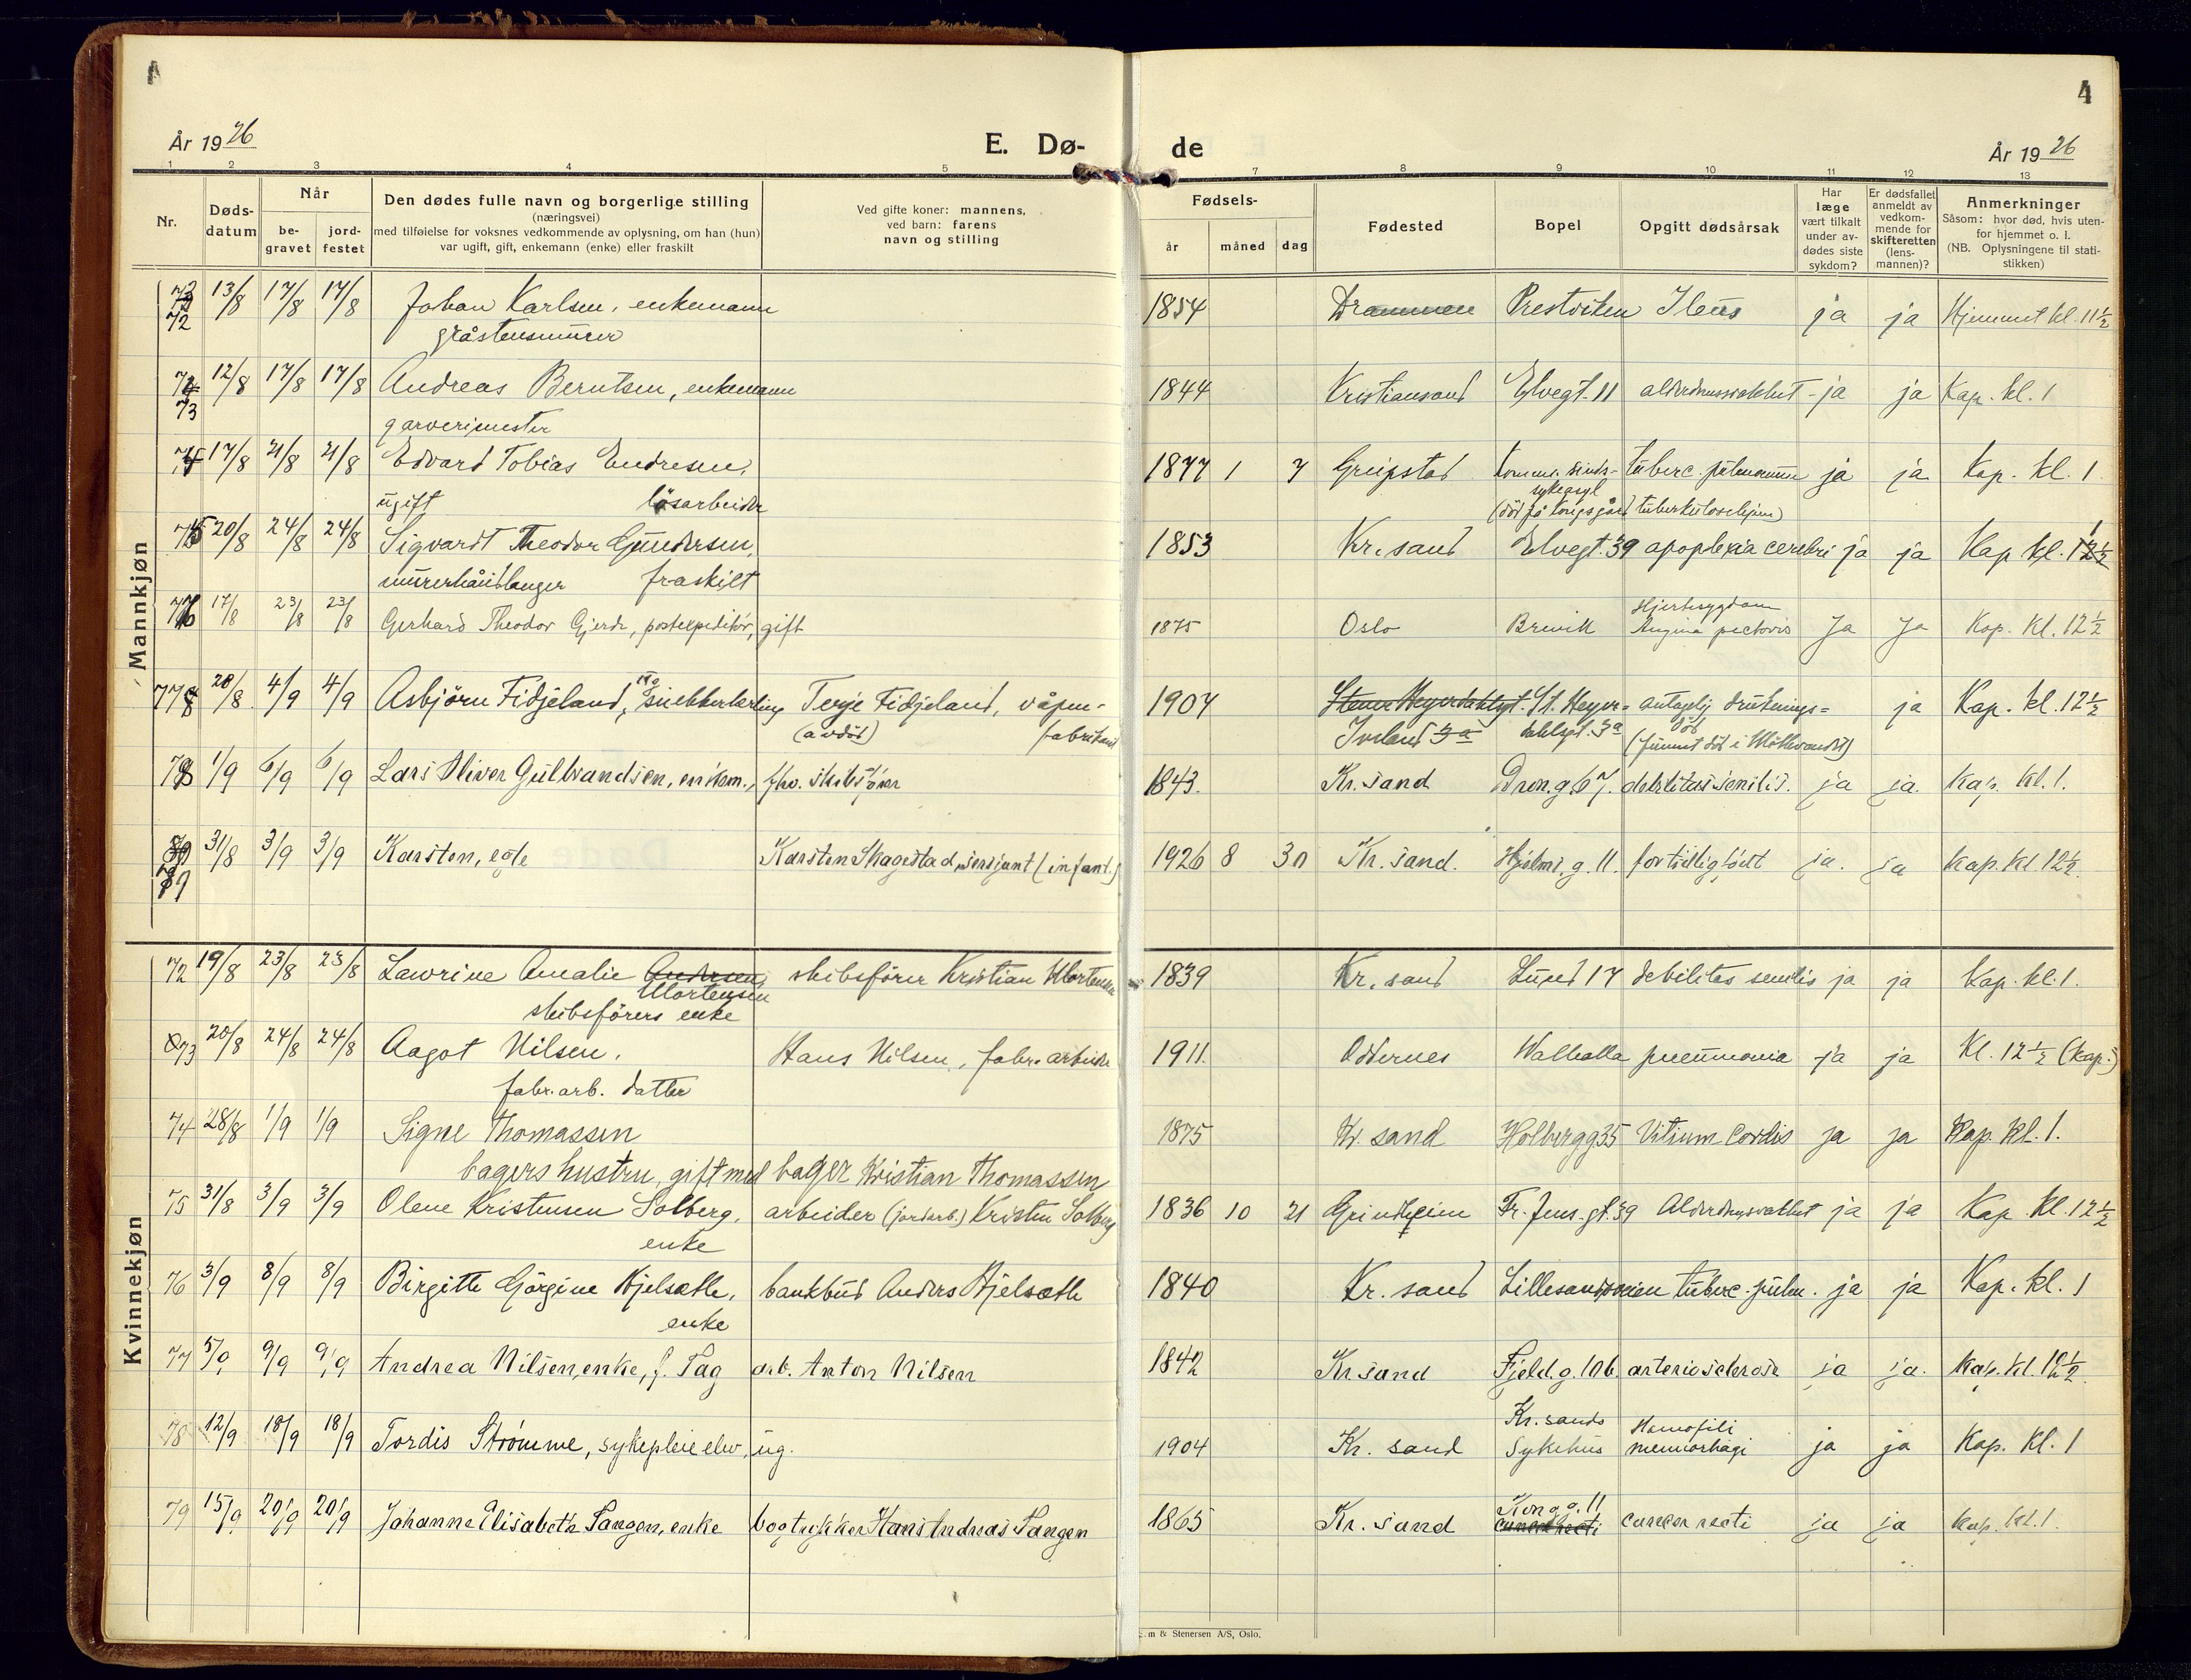 4
År 1926
E. Dø-
de
År 1926
1 2 3 4 5 7 8 9 10 11 12 13
Nr.
Døds-
datum
Når
be-
gravet
jord-
festet
Den dødes fulle navn og borgerlige stilling
(næringsvei)
med tilføielse for voksnes vedkommende av oplysning, om han (hun)
var ugift, gift, enkemann (enke) eller fraskilt
Ved gifte koner: mannens,
ved barn: farens
navn og stilling
Fødsels-
år
måned
dag
Fødested
Bopel
Opgitt dødsårsak
Har
læge
vært tilkalt
under av-
dødes siste
sykdom?
Er dødsfallet
anmeldt av
vedkom-
mende for
skifteretten
(lens-
mannen)?
Anmerkninger
Såsom: hvor død, hvis uten-
for hjemmet o. l.
(NB. Oplysningene til stati-
stikken)
Mannkjøn
72 13/8 17/8 17/8 Johan Karlsen, enkemann 1854 Drammen Prestviken Ileus ja ja Hjemmet kl. 11 1/2
gråstensmurer
73 12/8 17/8 17/8 Andreas Berntsen, enkemann 1844 Kristiansand Elvegt. 11 alderdomssvakhet ja ja Kap. kl. 1
garverimester
74 17/8 21/8 21/8 Edvard Tobias Endresen, 1877 1 7 Greipstad komm. sinds- tuberc. pulmonum ja ja Kap. kl. 1
ugift løsarbeider sykeasyl
(død på kongsgård tuberkulosehjem)
75 20/8 24/8 24/8 Sigvardt Theodor Gundersen, 1853 Kr.sand Elvegt. 39 apoplexia cerebri ja ja Kap kl. 1
murerhåndlanger fraskilt
76 17/8 23/8 23/8 Gerhard Theodor Gjerde, postexpeditør, gift 1875 Oslo Brevik Hjertesygdom
Angina pectoris Ja Ja Kap. Kl. 12 1/2
77 28/8 4/9 4/9 Asbjörn Fidjeland, snekkerlærling Terje Fidjeland, våpen- 1904 Stener Heyerdahlsgt. St. Heyer- antagelig druknings- ja Kap. kl. 12 1/2
(avdød) fabrikant Iveland 3a dahlsgt. 3a død
78 1/9 6/9 6/9 Lars Oliver Gulbrandsen, enkem., fhv. skibsfører 1843. Kr. sand Dron.g. 67. debilitas senilis. ja ja. Kap. kl. 1.
79 31/8 3/9 3/9 Karsten, egte Karsten Skagestad, sersjant (infant.) 1926 8 30 Kr. sand. Hjelms. g. 11. for tidlig født ja. ja Kap. kl. 12 1/2.
Kvinnekjøn
72 19/8 23/8 23/8 Lawrine Amalie Andersen, skibsfører Kristian Mortensen 1839 Kr. sand Lund 17 debilitas senilis ja ja Kap. kl. 1.
Mortensen
skibsførers enke
73 20/8 24/8 24/8 Aagot Nilsen, Hans Nilsen, fabr. arbeider 1911. Oddernes Walhalla pneumonia ja ja Kl. 12 1/2 (Kap.)
fabr.arb. datter
74 28/8 1/9 1/9 Signe Thomassen 1875 Kr. sand Holbergg 35 Vitium Cordis ja ja Kap. kl. 1.
bagers hustru, gift med bager Kristian Thomassen
75 31/8 3/9 3/9 Olene Kristensen Solberg, arbeider (jordarb.) Kristen Solberg 1836 10 21 Grindheim Fr. Jens. gt. 39 Alderdomssvakhet ja ja Kap. Kl. 12 1/2
enke
76 3/9 8/9 8/9 Birgitte Görgine Kjelsæthe, bankbud Anders Kjelsæthe 1840 Kr. sand Lillesandsveien tuberc. pulm. ja ja Kap. kl. 1
enke
77 5/9 9/9 9/9 Andrea Nilsen, enke, f. Tag arb. Anton Nilsen 1842 Kr sand Fjeld.g. 10b. arteriosclerose ja ja. Kap. kl. 12 1/2.
78 12/9 18/9 18/9 Tordis Strømme, sykepleieelev, ug. 1904 Kr. sand Kr. sands
Sykehus Hemofili
mennorhagi ja ja Kap. Kl. 1
79 15/9 20/9 20/9 Johanne Elisabeth Tangen, enke bogtrykker Hans Andreas Tangen 1865 Kr. sand Kong. g. 11
cancer recti cancer recti ja ja Kap. kl. 1.
m & Stenersen A/S, Oslo.